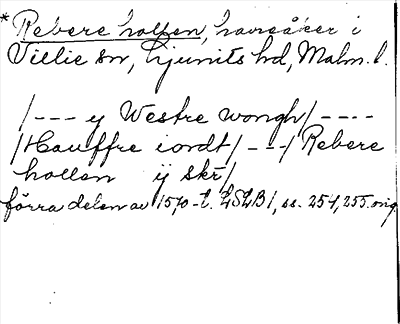 * Rebere hollen, havreåker i
Villie sn, Ljunits hd, Malm. l.
/--- y Westre wongh/----
/Hauffre iordt/---/Rebere
hollen ÿ skr/
förra delen av 1570-t. LSLB1, ss. 254, 255. orig.